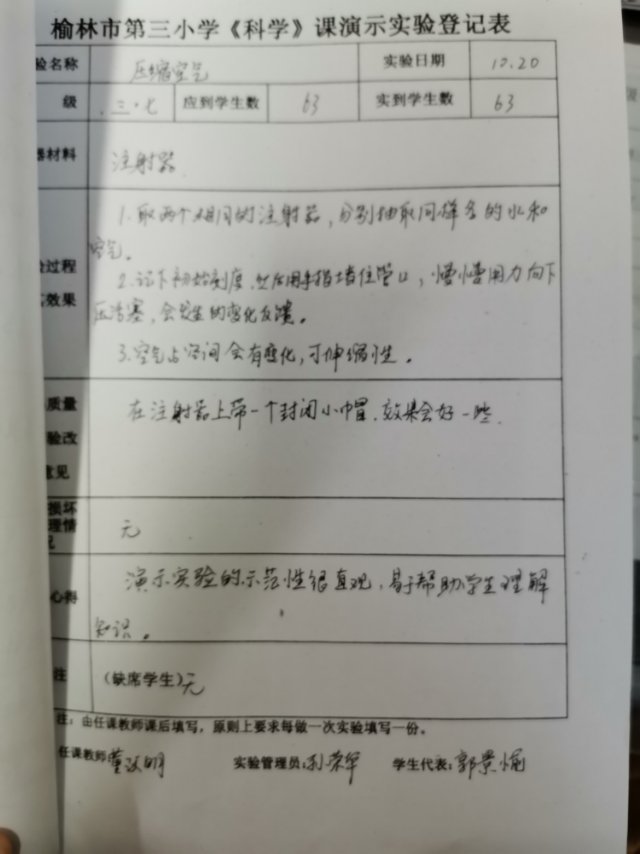 榆林市第三小学《科学》课演示实验登记表
验名称 压缩空气 实验日期 10.20
级 三·七 应到学生数 63 实到学生数 63
器材料 注射器
1.取两个相同的注射器,分别抽取同样多的水和
空气。
过程 2.记下初始刻度,然后用手指堵住管口,慢慢用力向下
效果 压活塞,会发生的变化反馈。
3.空气占空间会有变化,可伸缩性。
质量 在注射器上带一个封闭小帽,效果会好一些.
验改
意见
损坏
理情 无
况
心得 演示实验的示范性很直观,易于帮助学生理解
知识。
注 (缺席学生)无
注:由任课教师课后填写,原则上要求每做一次实验填写一份。
任课教师: 实验管理员: 荣军 学生代表:郭景